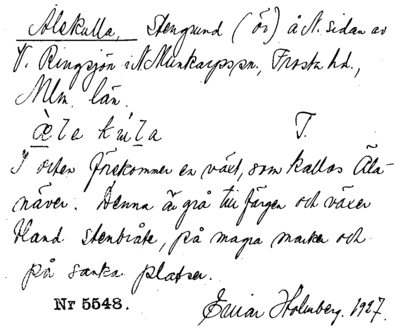 Älskulla, Stengrund (ör) å N. sidan av
V. Ringsjön i N Munkarps sn., Frosta hd.,
Mlm. län.
æ̀le kùla T.
I orten förekommer en växt, som kallas Äla-
näver. Denna är grå till färgen och växer
bland stenbråte, på magra marker och
på sanka platser.
Nr 5548.
Einar Holmberg. 1927.